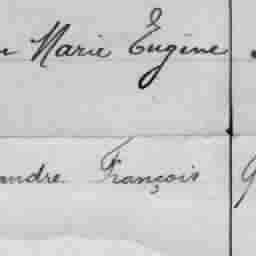 Marie Eugène
andre François